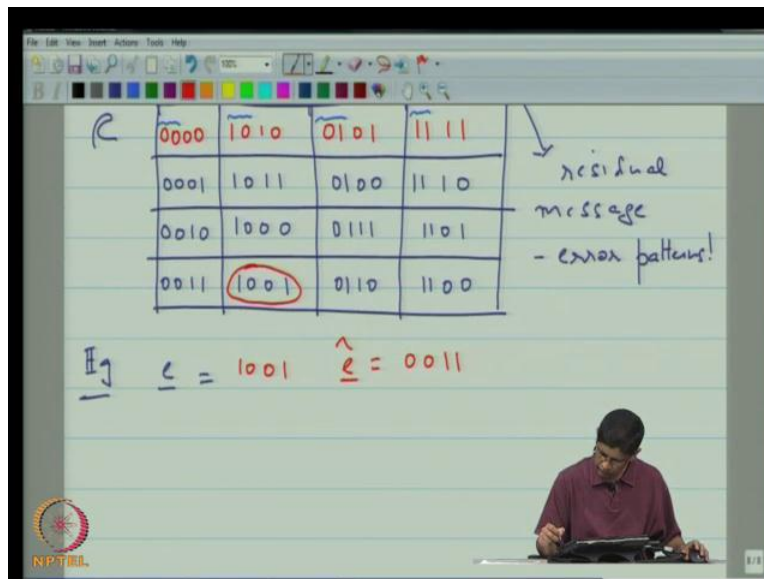 File Edit View Insert Actions Tools Help
100%
B I
C 0000 1010 0101 1111
0001 1011 0100 1110
0010 1000 0111 1101
0011 1001 0110 1100
residual
message
- error patterns!
Eg e = 1001 ê = 0011
NPTEL
8/8